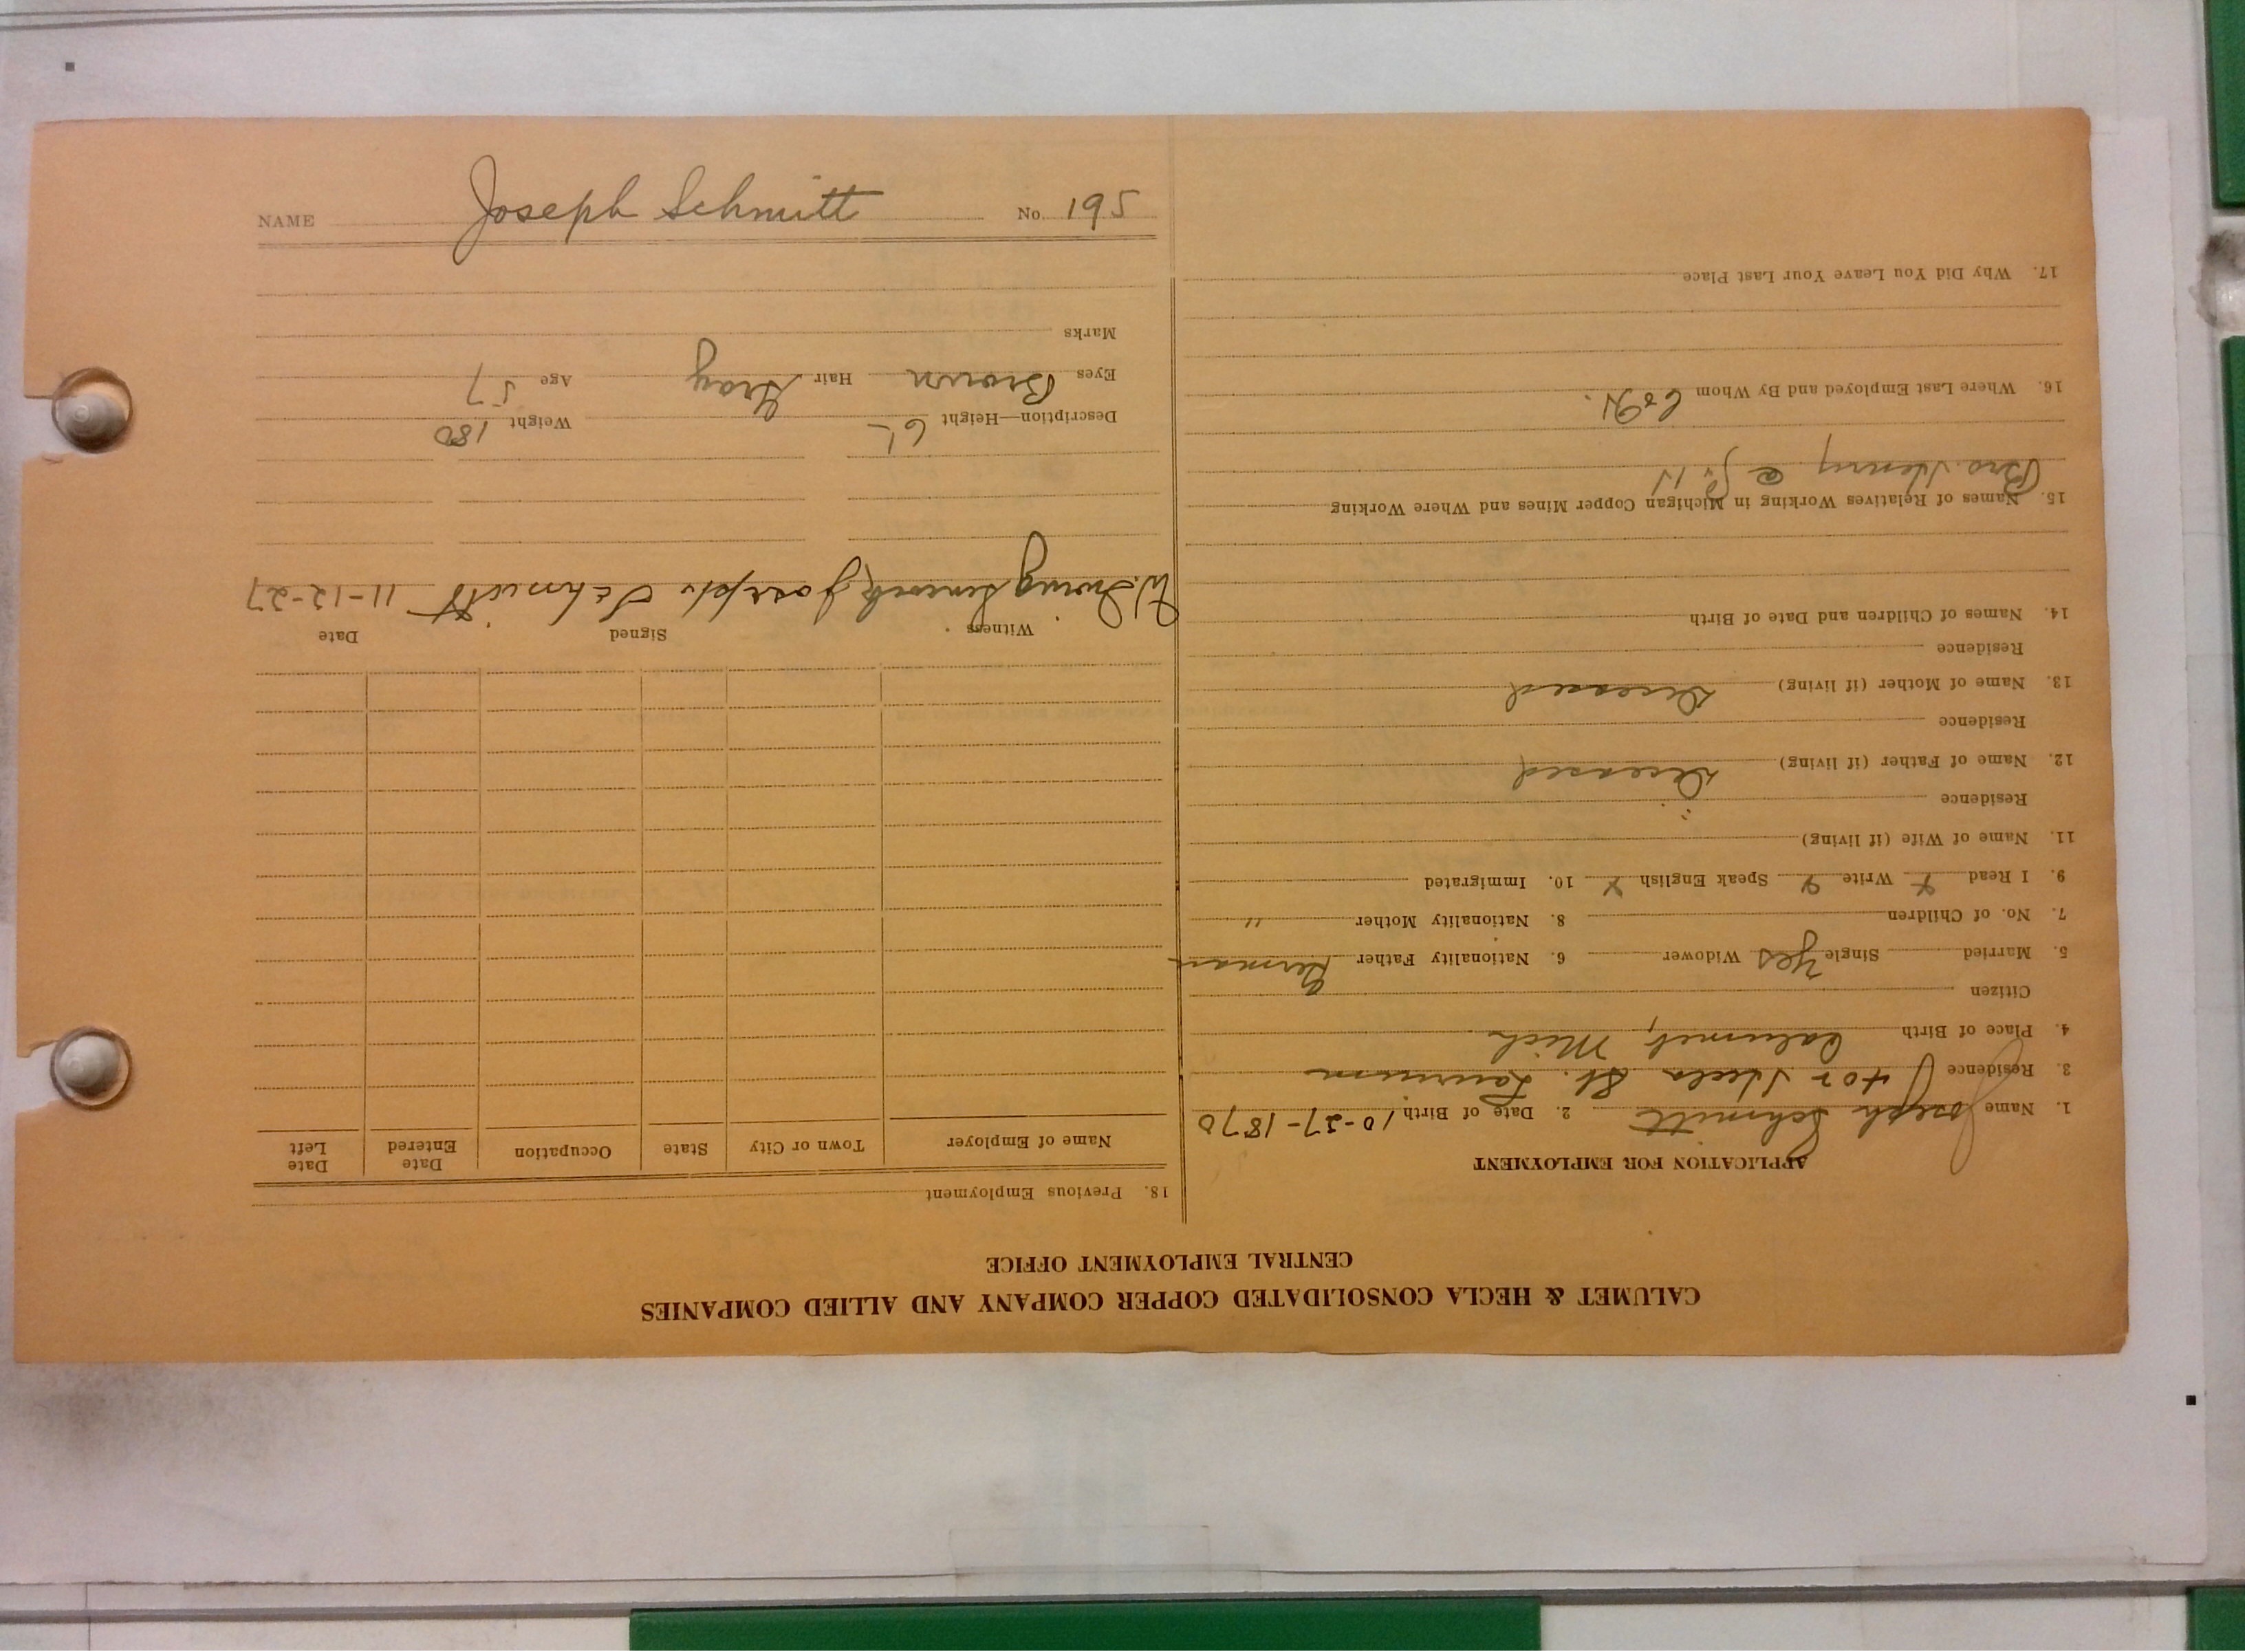 CALUMET & HECLA CONSOLIDATED COPPER COMPANY AND ALLIED COMPANIES
CENTRAL EMPLOYMENT OFFICE
APPLICATION FOR EMPLOYMENT
1. Name Joseph Schmitt 2. Date of Birth 10-27-1870
3. Residence Hecla St. Laurium
4. Place of Birth Calumet, Mich
Citizen
5. Married Single Yes Widower 6. Nationality Father German
7. No. of Children 8. Nationality Mother "
9. I Read Write Speak English 10. Immigrated
11. Name of Wife (if living)
Residence
12. Name of Father (if living) Deceased
Residence
13. Name of Mother (if living) Deceased
Residence
14. Names of Children and Date of Birth
15. Names of Relatives Working in Michigan Copper Mines and Where Working
Bro. Henry @
16. Where Last Employed and By Whom C&H.
17. Why Did You Leave Your Last Place
18. Previous Employment
Name of Employer Town or City State Occupation Date Entered Date Left
Witness Signed Date
W. Irving Joseph Schmitt 11-12-27
Description—Height 6' Weight 180
Eyes Brown Hair Gray Age 57
Marks
NAME Joseph Schmitt No. 195